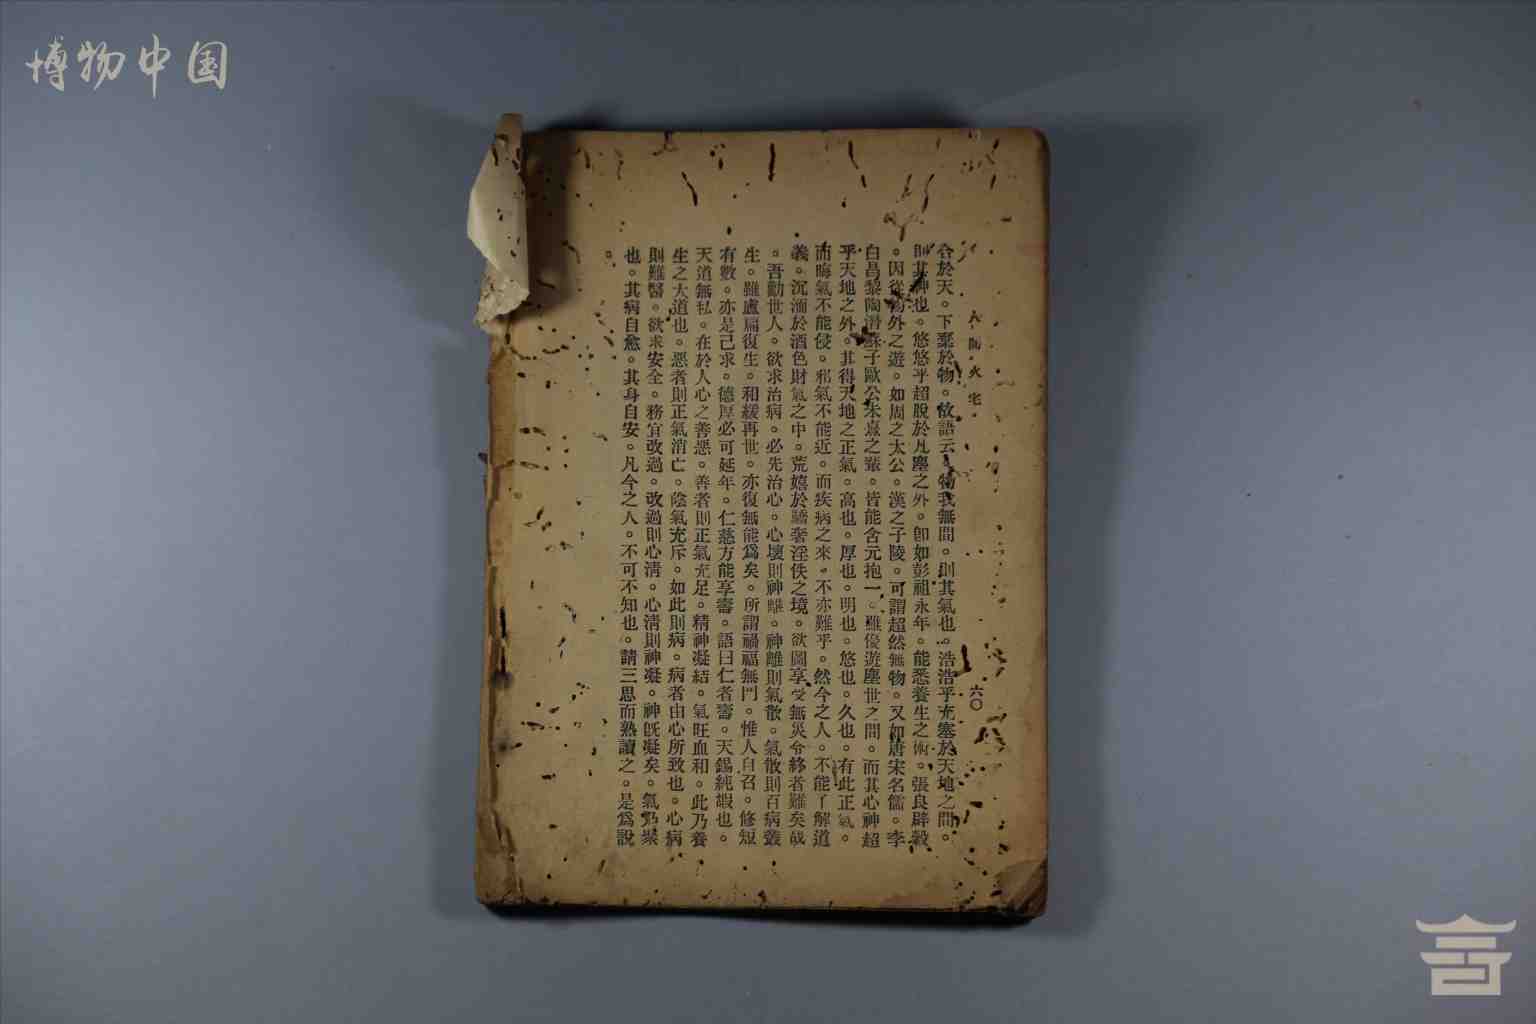 博物中国
六〇
合於天。下棄於物。故語云。物我無間。則其氣也。浩浩乎充塞於天地之間。
則其神也。悠悠乎超脫於凡塵之外。卽如彭祖永年。能悉養生之術。張良辟穀
。因從物外之遊。如周之太公。漢之子陵。可謂超然無物。又如唐宋名儒。李
白昌黎陶潛蘇子歐公朱熹之輩。皆能含元抱一。雖優遊塵世之間。而其心神超
乎天地之外。其得天地之正氣。高也。厚也。明也。悠也。久也。有此正氣。
而晦氣不能侵。邪氣不能近。而疾病之來。不亦難乎。然今之人。不能了解道
義。沉湎於酒色財氣之中。荒嬉於驕奢淫佚之境。欲圖享受無災令終者難矣哉
。吾勸世人。欲求治病。必先治心。心壞則神離。神離則氣散。氣散則百病叢
生。雖盧扁復生。和緩再世。亦復無能爲矣。所謂禍福無門。惟人自召。修短
有數。亦是己求。德厚必可延年。仁慈方能享壽。語曰仁者壽。天錫純嘏也。
天道無私。在於人心之善惡。善者則正氣充足。精神凝結。氣旺血和。此乃養
生之大道也。惡者則正氣消亡。陰氣充斥。如此則病。病者由心所致也。心病
則難醫。欲求安全。務宜改過。改過則心清。心清則神凝。神旣凝矣。氣乃聚
也。其病自愈。其身自安。凡今之人。不可不知也。請三思而熟讀之。是爲說
。